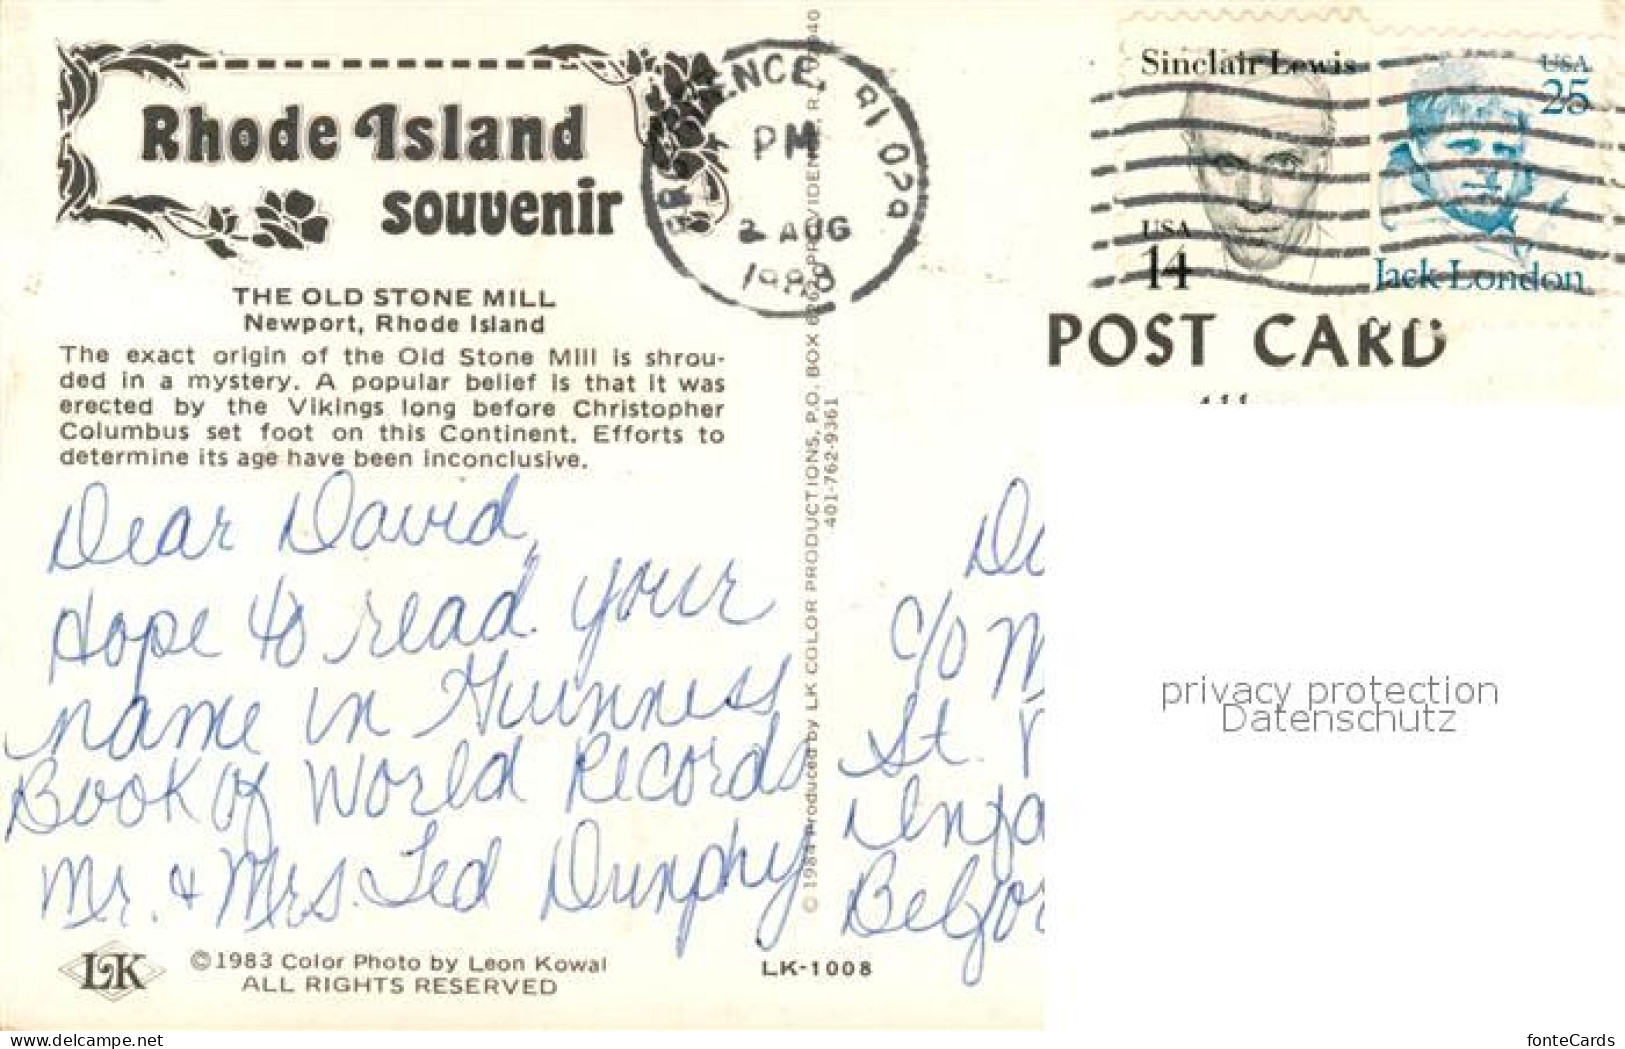 Rhode Island
souvenir
THE OLD STONE MILL
Newport, Rhode Island
The exact origin of the Old Stone Mill is shrou-
ded in a mystery. A popular belief is that it was
erected by the Vikings long before Christopher
Columbus set foot on this Continent. Efforts to
determine its age have been inconclusive.
Dear David,
Hope to read your
name in Guinness
Book of World Records
Mr. & Mrs. Ted Dunphy
LK
©1983 Color Photo by Leon Kowal
ALL RIGHTS RESERVED
LK-1008
© 1984 Produced by LK COLOR PRODUCTIONS, P.O. BOX
401-762-9361
RI 029
PM
2 AUG
1988
Sinclair Lewis
USA
14
USA
25
Jack London
POST CARD
c/o M
St.
Info
Belfor
privacy protection
Datenschutz
www.delcampe.net
fonteCards